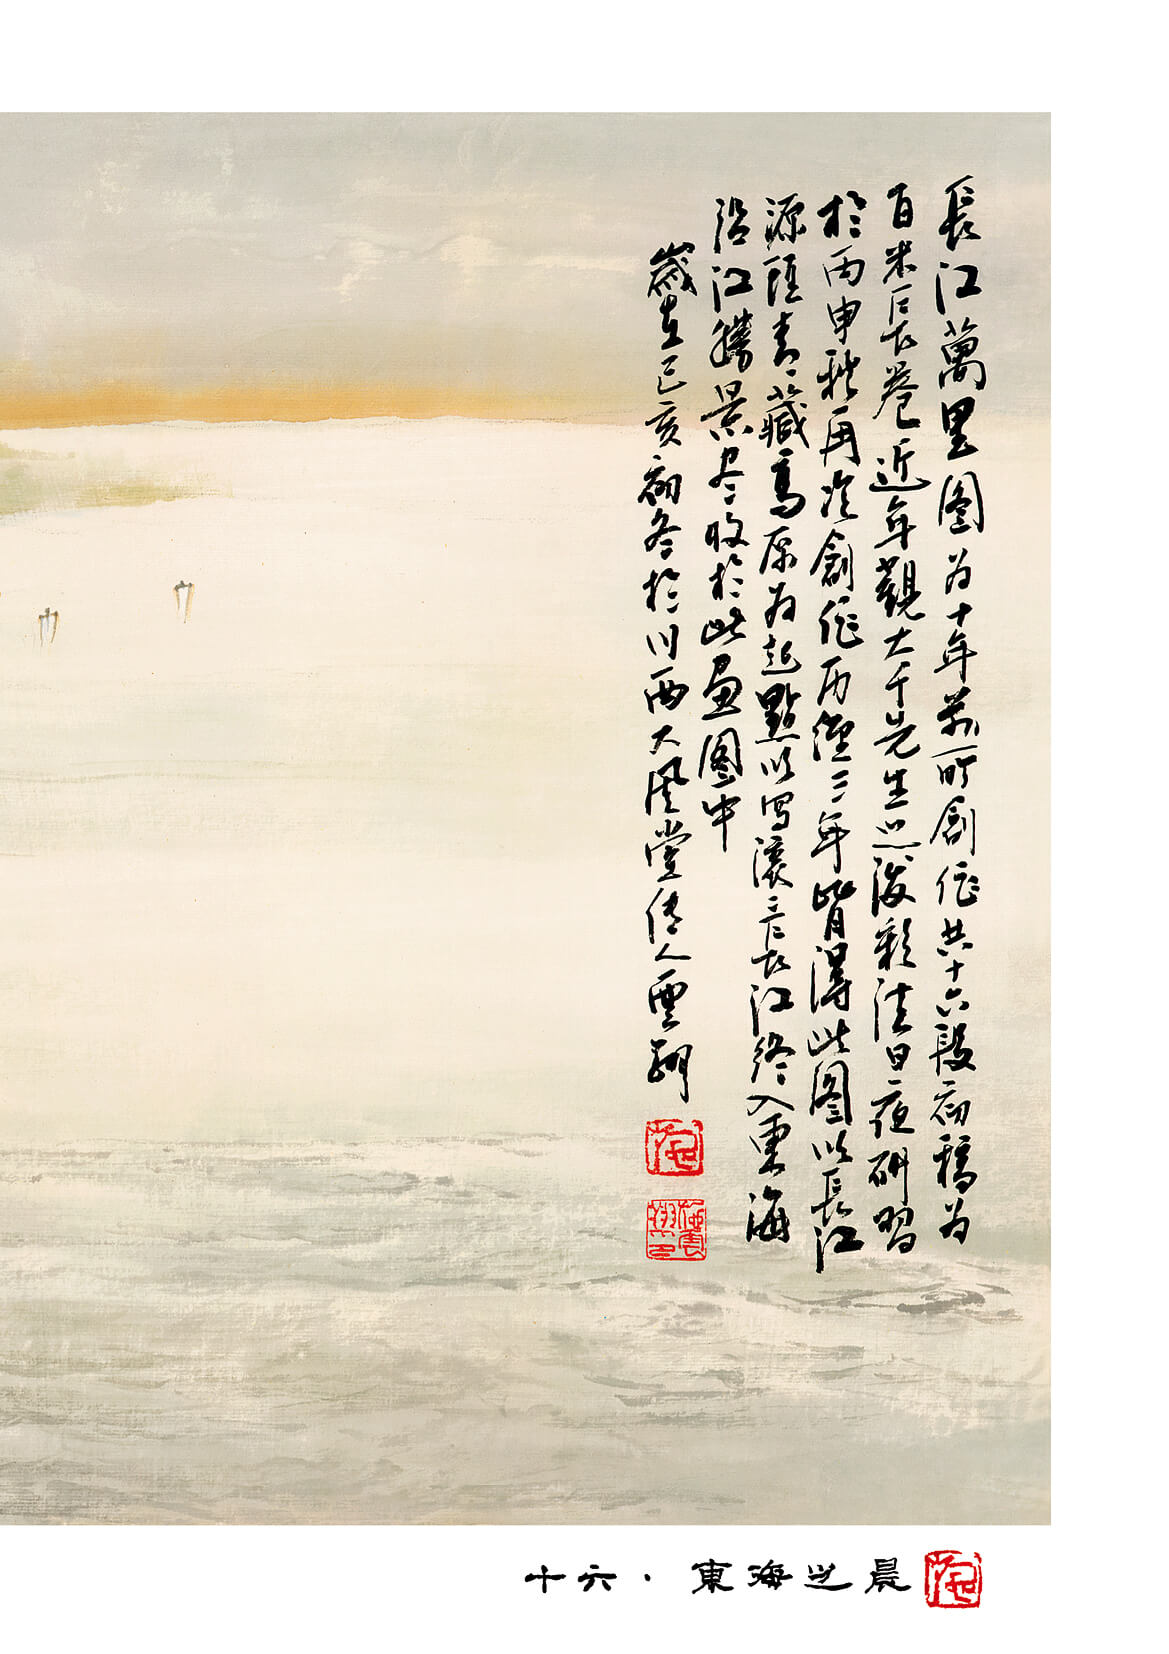 長江萬里图为十年前所創作共十六段初稿为
百米长卷近年觀大千先生泼彩法日夜研習
於丙申秋再次創作历經三年皆得此图以長江
源頭青藏高原为起點以写滚滚長江终入東海
沿江勝景尽收於此画图中
歲在己亥初冬於川西大风堂传人雲翔
十六·東海之晨